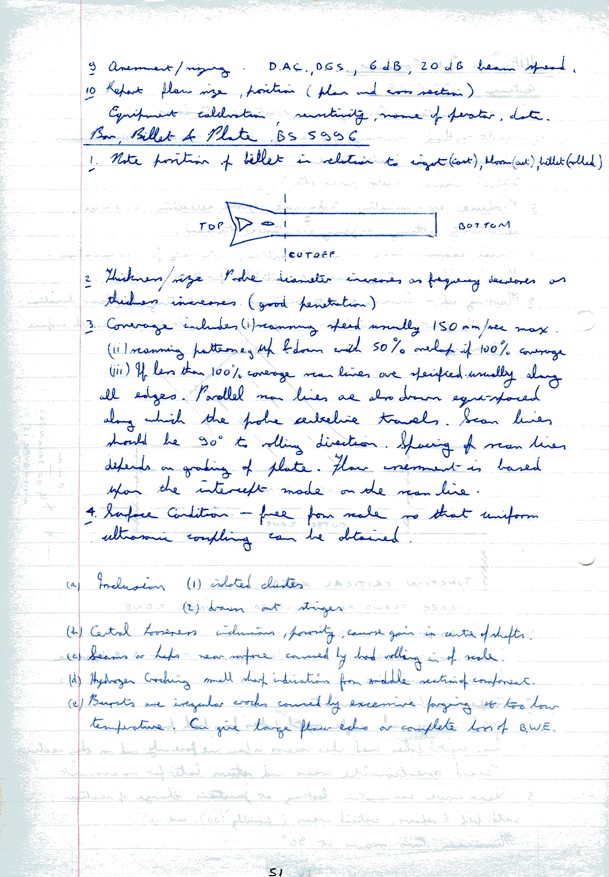 9 Assessment/sizing. D.A.C., DGS., 6 dB, 20 dB beam spread.
10 Report flaw size, position (plan and cross section)
Equipment calibration, sensitivity, name of operator, date.
Bar, Billet & Plate. BS 5996
1. Note position of billet in relation to ingot (cast), bloom (cut), billet (rolled)
TOP BOTTOM
CUTOFF
2 Thickness/size Probe diameter increases as frequency decreases as
thickness increases (good penetration)
3. Coverage includes (i) scanning speed usually 150 mm/sec max.
(ii) scanning pattern eg up & down with 50% overlap if 100% coverage
(iii) If less than 100% coverage scan lines are specified usually along
all edges. Parallel scan lines are also drawn equi-spaced
along which the probe centreline travels. Scan lines
should be 90° to rolling direction. Spacing of scan lines
depends on grading of plate. Flaw assessment is based
upon the intercept made on the scan line.
4. Surface Condition – free from scale so that uniform
ultrasonic coupling can be obtained.
(a) Inclusion (1) isolated clusters
(2) drawn out stringers
(b) Central looseness inclusions, porosity, coarse grain in centre of shafts.
(c) Seams or laps near surface caused by bad rolling in of scale.
(d) Hydrogen Cracking small sharp indications from middle section of component.
(e) Bursts are irregular cracks caused by excessive forging at too low
temperature. Can give large flaw echo or complete loss of B.W.E.
51